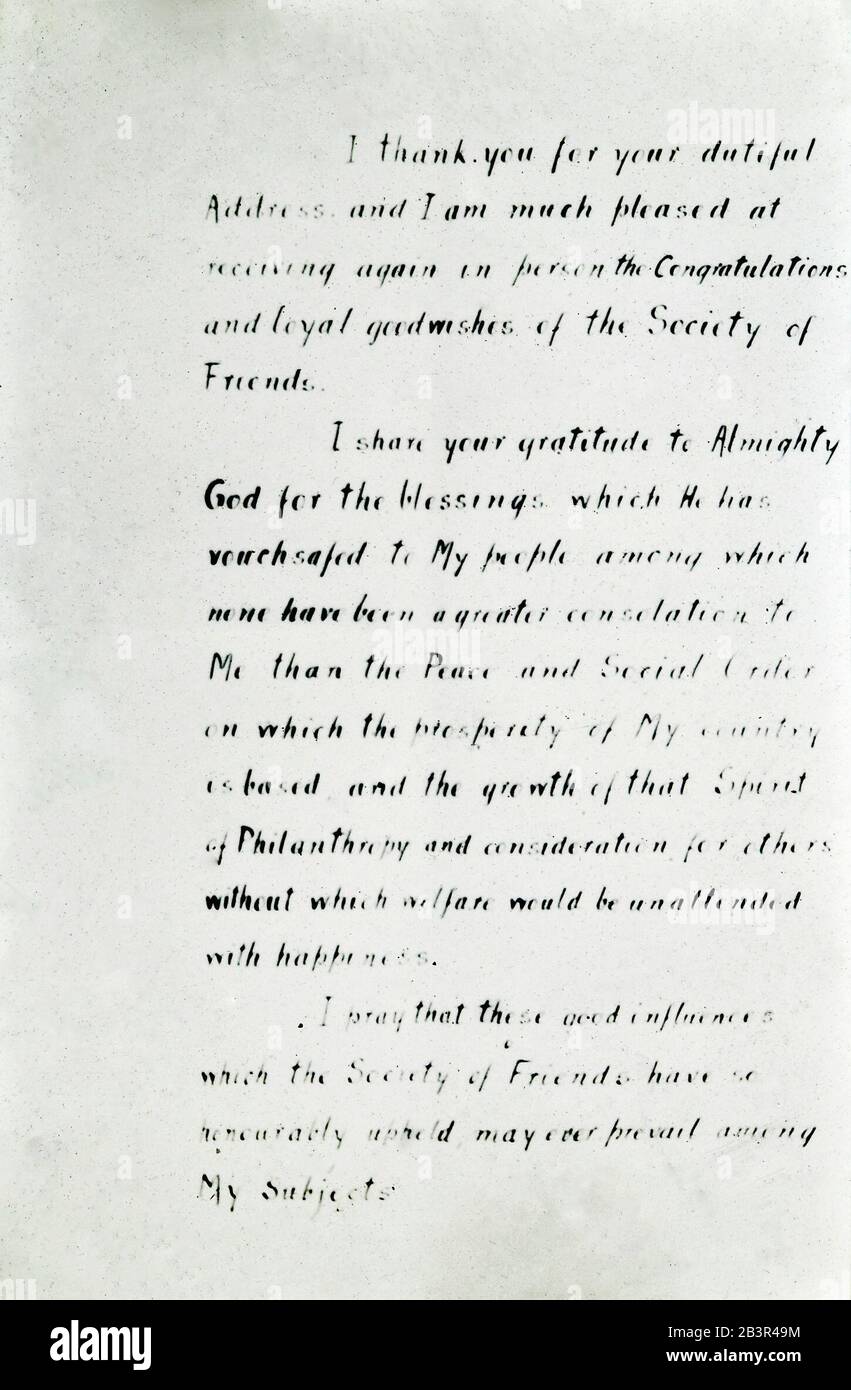 I thank you for your dutiful
Address, and I am much pleased at
receiving again in person the Congratulations
and loyal good wishes of the Society of
Friends.
I share your gratitude to Almighty
God for the blessings which He has
vouchsafed to My people among which
none have been a greater consolation to
Me than the Peace and Social Order
on which the prosperity of My country
is based, and the growth of that Spirit
of Philanthropy and consideration for others
without which welfare would be unattended
with happiness.
I pray that these good influences
which the Society of Friends have so
honourably upheld, may ever prevail among
My Subjects
alamy
Image ID: 2B3R49M
www.alamy.com